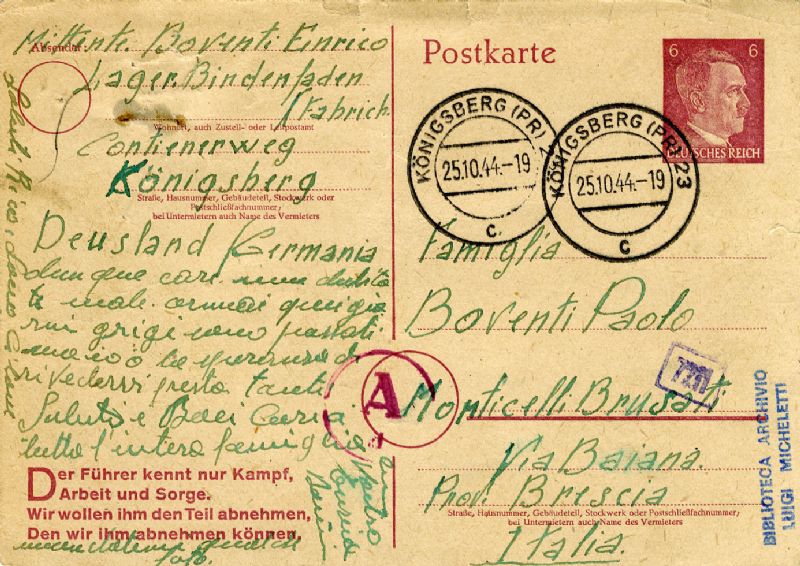 Absender:
Mittente Boventi Enrico
Lager. Bindenfaden
(Fabrich
Wohnort, auch Zustell- oder Leitpostamt
Contienerweg
Königsberg
Straße, Hausnummer, Gebäudeteil, Stockwerk oder
Postschließfachnummer;
bei Untermietern auch Name des Vermieters
Deusland Germania
dunque cari non dubita
te male ormai quei gior
ni grigi sono passati
di
rivederci presto tanti
Saluti e Baci
tutta l'intera famiglia
Der Führer kennt nur Kampf,
Arbeit und Sorge.
Wir wollen ihm den Teil abnehmen,
Den wir ihm abnehmen können.
foto.
Postkarte
6 6
DEUTSCHES REICH
KÖNIGSBERG (PR)
25.10.44.-19
c
KÖNIGSBERG (PR) 23
25.10.44.-19
c
Famiglia
Boventi Paolo
A
Monticelli Brusati
Via Baiana.
Prov. Brescia
Straße, Hausnummer, Gebäudeteil, Stockwerk oder Postschließfachnummer;
bei Untermietern auch Name des Vermieters
Italia.
BIBLIOTECA ARCHIVIO
LUIGI MICHELETTI